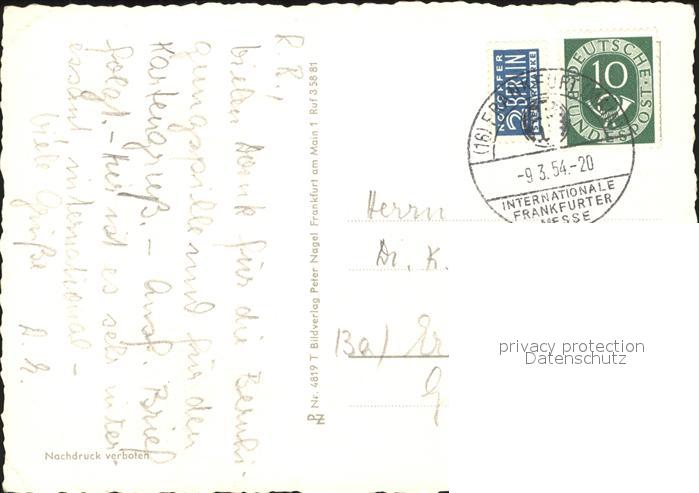 R. R.!
Vielen Dank für die Beruhi-
gungspille und für den
Kartengruß. – Ausf. Brief
folgt. – Hier ist es sehr inter-
essant international –
Viele Grüße
Nachdruck verboten
Nr. 4819 T Bildverlag Peter Nagel Frankfurt am Main 1 Ruf 3 58 81
NOTOPFER
2 BERLIN
STEUERMARKE
DEUTSCHE
10
BUNDESPOST
(16) FRANKFURT
-9.3.54.-20
INTERNATIONALE
FRANKFURTER
MESSE
Herrn
Dr. K.
privacy protection
Datenschutz